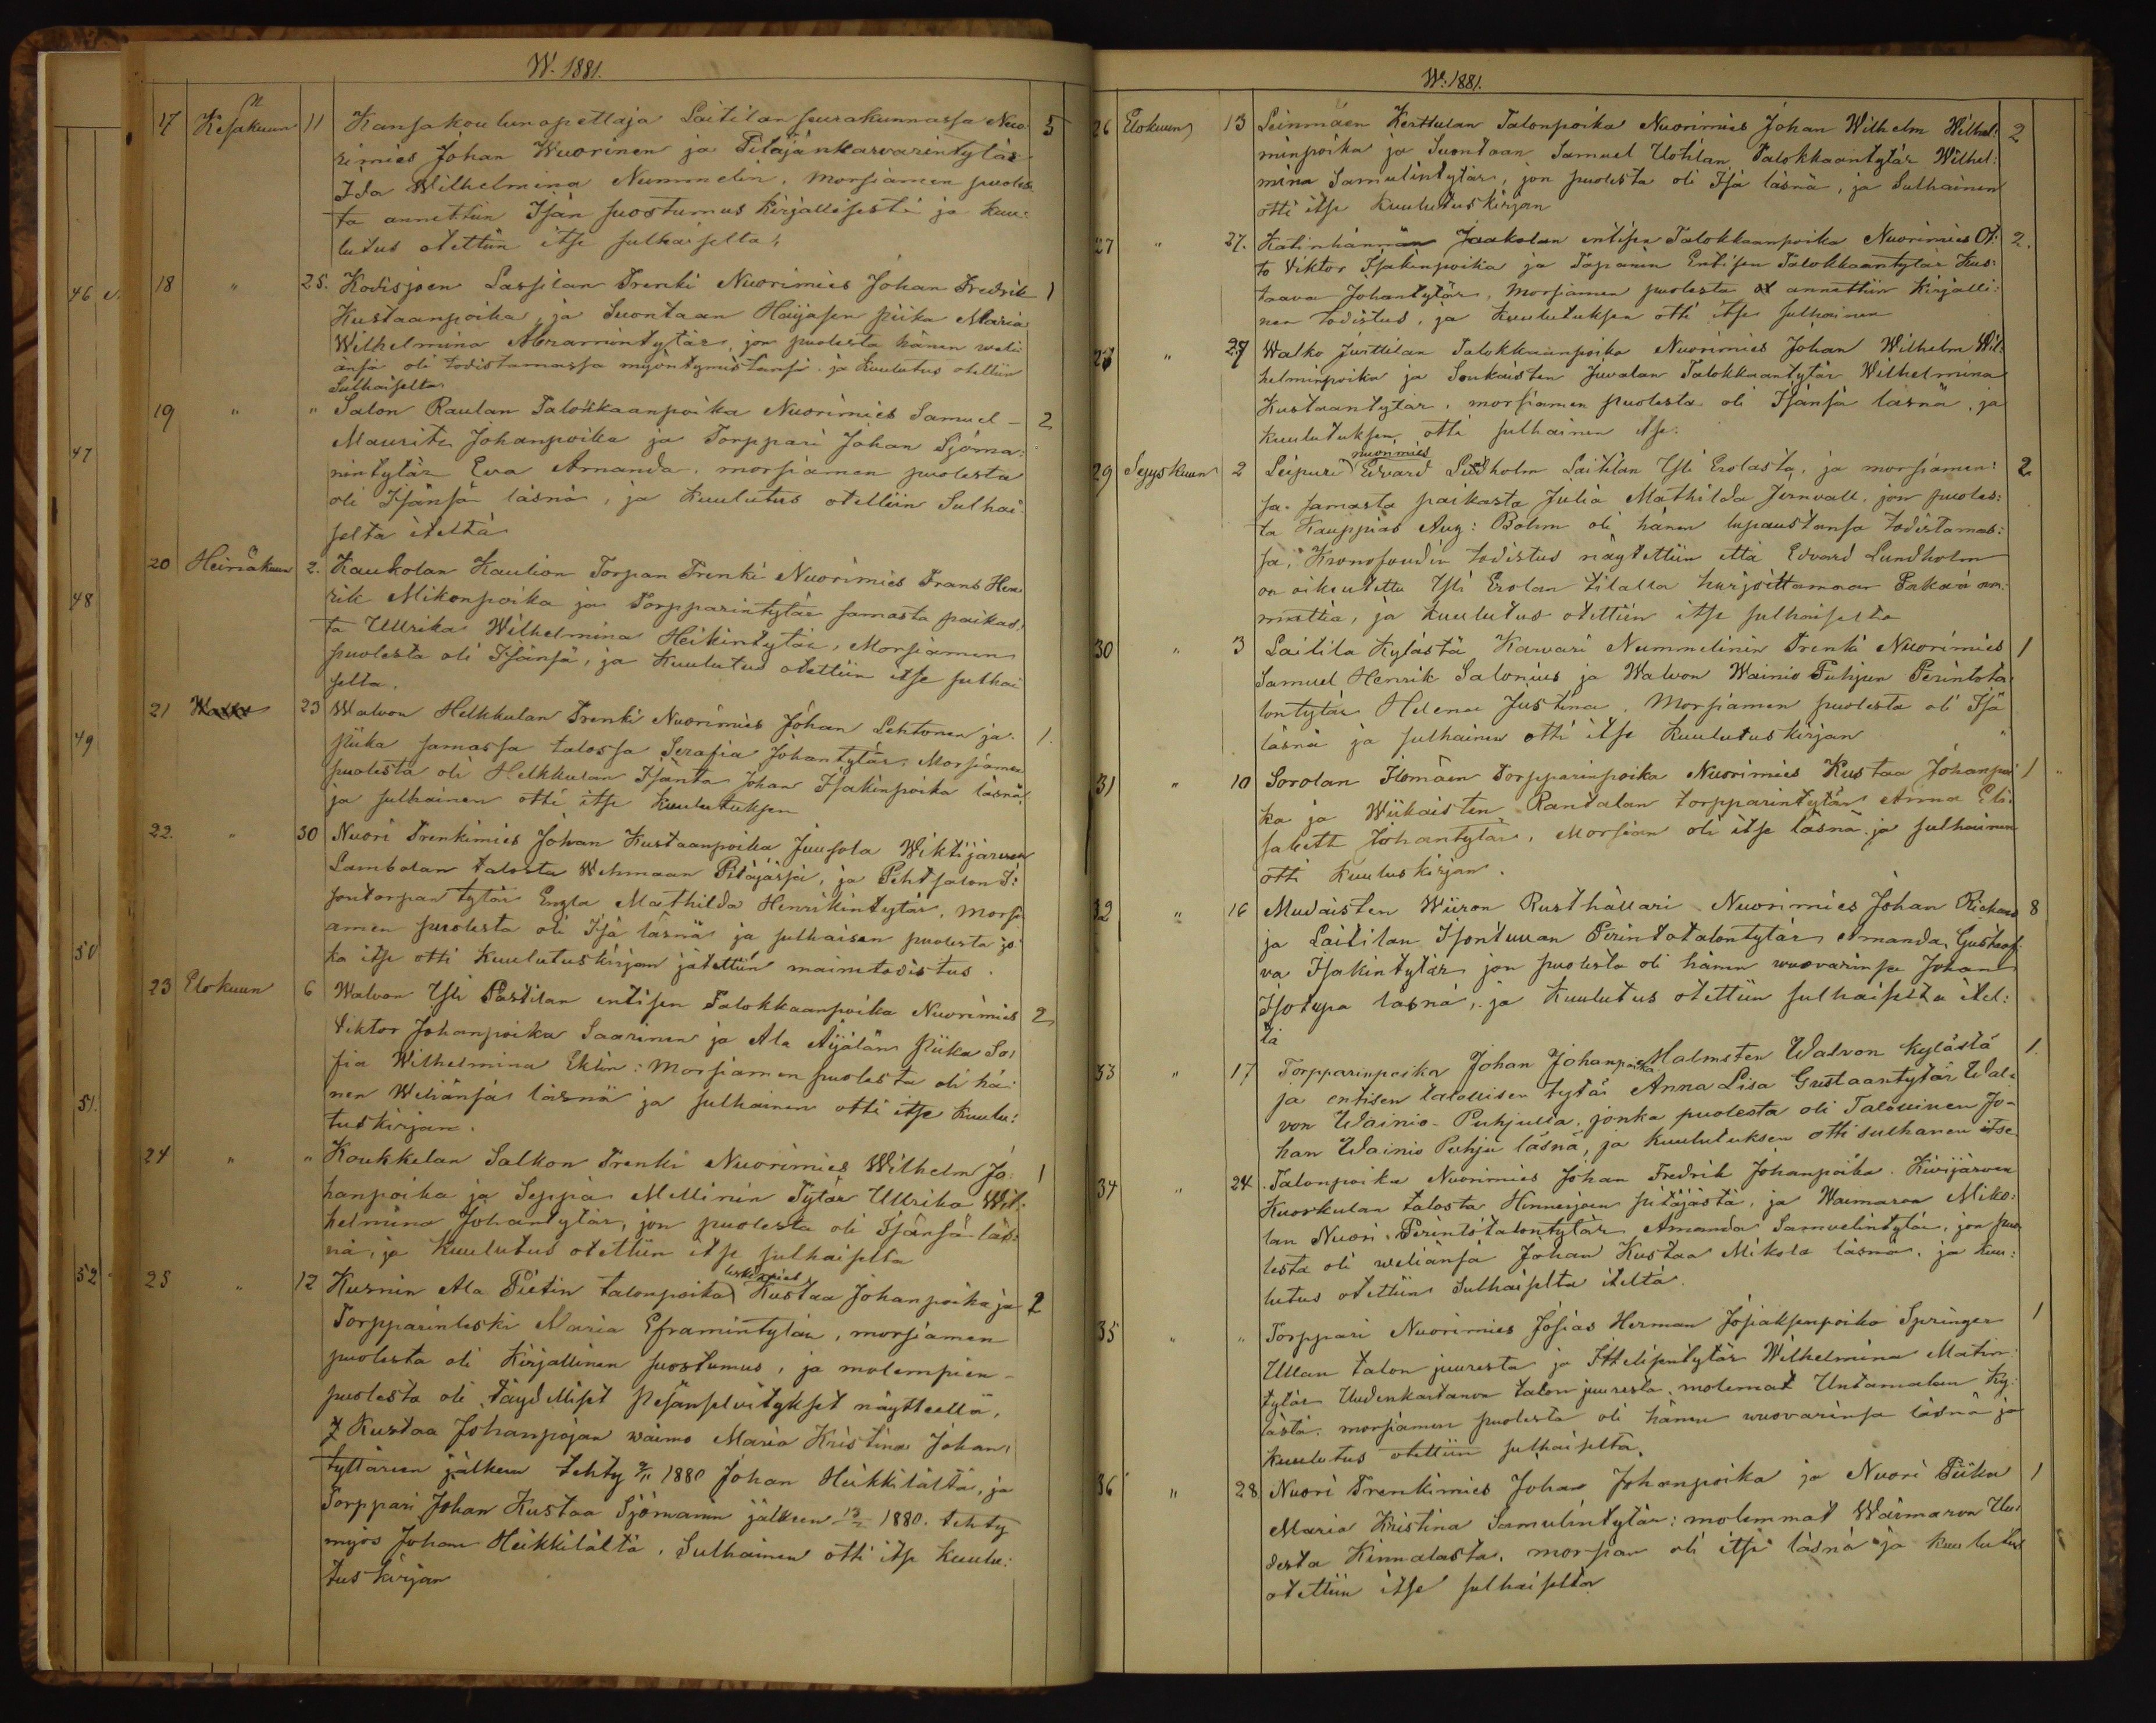 W. 1881.
17 Kesäkuun 11 Kansakoulunopettaja Laitilan seurakunnassa Nuo- 5
rimies Johan Wuorinen ja Pitäjänkarvarintytär
Ida Wilhelmina Nummelin. Morsiamen puoles:
ta annettiin Isän suostumus kirjallisesti ja kuu:
lutus otettiin itse sulhaiselta.
18 " 25. Kodisjoen Lassilan Trenki Nuorimies Johan Fredrik 1
Kustaanpoika, ja Suontaan Häyäsen piika Maria
Wilhelmina Abramintytär, jon puolesta hänen weli
änsä oli todistamassa myöntymistänsä. ja kuulutus otettiin
Sulhaiselta.
19 " " Salon Raulan Talokkaanpoika Nuorimies Samuel - 2
Maurits Johanpoika ja Torppari Johan Sjöma:
nintytär Eva Amanda. morsiamen puolesta
oli Isänsä läsnä, ja kuulutus otettiin Sulhai
selta iteltä
20 Heinäkuun 2. Kaukolan Kaulion Torpan Trenki Nuorimies Frans Hen
rik Mikonpoika ja Torpparintytär samasta paikas:
ta Ullrika Wilhelmina Heikintytär, Morsiamen
puolesta oli Isänsä, ja kuulutus otettiin itse sulhai
selta.
21 23 Walvon Helkkulan Trenki Nuorimies Johan Lehtonen ja 1.
piika samassa talossa Serafia Johantytär. Morsiamen
puolesta oli Helkkulan Isäntä Johan Isakinpoika läsnä,
ja sulhainen otti itse kuulutuksen
22. " 30 Nuori Trenkimies Johan Kustaanpoika Juusola Wiktijärven
Lambolan talosta Wehmaan Pitäjässä, ja Pehtsalon I:
sontorpan tytär Engla Mathilda Henrikintytär, Morsi
amen puolesta oli Isä läsnä ja sulhaisen puolesta jo
ka itse otti kuulutuskirjan jätettiin mainetodistus.
23 Elokuun 6 Walvon Yli Pastilan entisen Talokkaanpoika Nuorimies 2
Viktor Johanpoika Saarinen ja Ala Äijälän piika So:
fia Wilhelmina Eklin: Morsiamen puolesta oli hä:
nen Weliänsä läsnä ja sulhainen otti itse kuulu:
tuskirjan.
24 " " Koukkelan Salkon Trenki Nuorimies Wilhelm Jo: 1
hanpoika ja Seppä Mellinin Tytär Ullrika Wil:
helmina Johantytär, jon puolesta oli Isänsä läs:
nä, ja kuulutus otettiin itse sulhaiselta
25 " 12 Kusnin Ala Pietin talonpoika leskimies Kustaa Johanpoika ja 2
Torpparinleski Maria Eframintytär, morsiamen
puolesta oli Kirjallinen suostumus, ja molempien-
puolesta oli täydelliset Pesänselvitykset näytteellä,
Kustaa Johanpojan waimo Maria Kristina Johan:
tyttären jälkeen tehty 9/11 1880 Johan Heikkilältä, ja
Torppari Johan Kustaa Sjömanin jälkeen 1880. tehty
myös Johan Heikkilältä. Sulhainen otti itse kuulu:
tuskirjan
46
47
48
49
50
51.
52
W. 1881.
26 Elokuun 13 Leinmäen Kerttulan Talonpoika Nuorimies Johan Wilhelm Wilhel: 2
minpoika ja Suontaan Samuel Uotilan Talokkaantytär Wilhel:
mina Samulintytär, jon puolesta oli Isä läsnä, ja Sulhainen
otti itse kuulutuskirjan
27 " 27. Katinhännän Jaakolan entisen Talokkaanpoika Nuorimies Ot: 2.
to Viktor Isakinpoika ja Tapanin Entisen Talokkaantytär Kus:
taava Johantytär, Morsiamen puolesta annettiin kirjalli:
nen todistus, ja kuulutuksen otti itse sulhainen
28 " 27 Walko Junttilan Talokkaanpoika Nuorimies Johan Wilhelm Wil:
helminpoika ja Soukaisten Juvalan Talokkaantytär Wilhelmina
Kustaantytär. morsiamen puolesta oli Isänsä läsnä, ja
kuulutuksen otti sulhainen itse.
29 Syyskuun 2 Leipuri nuorimies Edvard Lindholm Laitilan Yli Erolasta, ja morsiamen: 2
sa samasta paikasta Julia Mathilda Jernvall. jon puoles:
ta Kauppias Aug: Bohm oli hänen lupaustansa todistamas:
sa, Kronofoudin todistus näytettiin että Edvard Lundholm
on oikeutettu Yli Erolan tilalla harjoittamaan Pakari am:
mattia, ja kuulutus otettiin itse sulhaiselta
30 " 3 Laitila Kylästä Karvari Nummelinin Trenki Nuorimies 1
Samuel Henrik Salonius ja Walvon Wainio Puhjun Perintöta:
lontytär Helena Justina. Morsiamen puolesta oli Isä
läsnä ja sulhainen otti itse kuulutuskirjan
31 " 10 Sorolan Ilomäen Torpparinpoika Nuorimies Kustaa Johanpoi 1
ka ja Wiikaisten Rantalan torpparintytär Anna Eli:
sabett Johantytär, Morsian oli itse läsnä ja sulhainen
otti kuuluskirjan.
32 " 16 Mudaisten Wiiron Rusthållari Nuorimies Johan Richard 8
ja Laitilan Isontuvan Perintötalontytär Amanda Gustaf:
va Isakintytär jon puolesta oli hänen wuovarinsa Johan
Isotupa läsnä, ja kuulutus otettiin sulhaiselta itel:
tä
33 " 17 Torpparinpoika Johan Johanpoika Malmsten Walvon kylästä 1.
ja entisen talollisen tytär Anna Lisa Gustaantytär Wal-
von Wainio-Puhjulla, jonka puolesta oli Talollinen Jo-
han Wainio Puhju läsnä, ja kuulutuksen otti sulhanen itse
34 " 24 Talonpoika Nuorimies Johan Fredrik Johanpoika. Kivijärven
Kuoskulan talosta Hinnerjoen pitäjästä, ja Waimaron Miko:
lan Nuori Perintötalontytär Amanda Samuelintytär, jon puo
lesta oli weliänsä Johan Kustaa Mikola läsnä. ja kuu:
lutus otettiin Sulhaiselta iteltä.
35 " " Torppari Nuorimies Josias Herman Josiaksenpoika Springer 1
Ullan talon juuresta ja Ittelisentytär Wilhelmina Matin:
tytär Uudenkartanon talon juuresta, molemat Untamalan Ky:
lästä. morsiamen puolesta oli hänen wuovarinsa läsnä ja
kuulutus otettiin sulhaiselta.
36 " 28 Nuori Trenkimies Johan Johanpoika ja Nuori Piika 1
Maria Kristina Samulintytär: molemmat Waimaron Uu:
desta Kinnalasta. morsian oli itse läsnä ja kuulutus
otettiin itse sulhaiselta